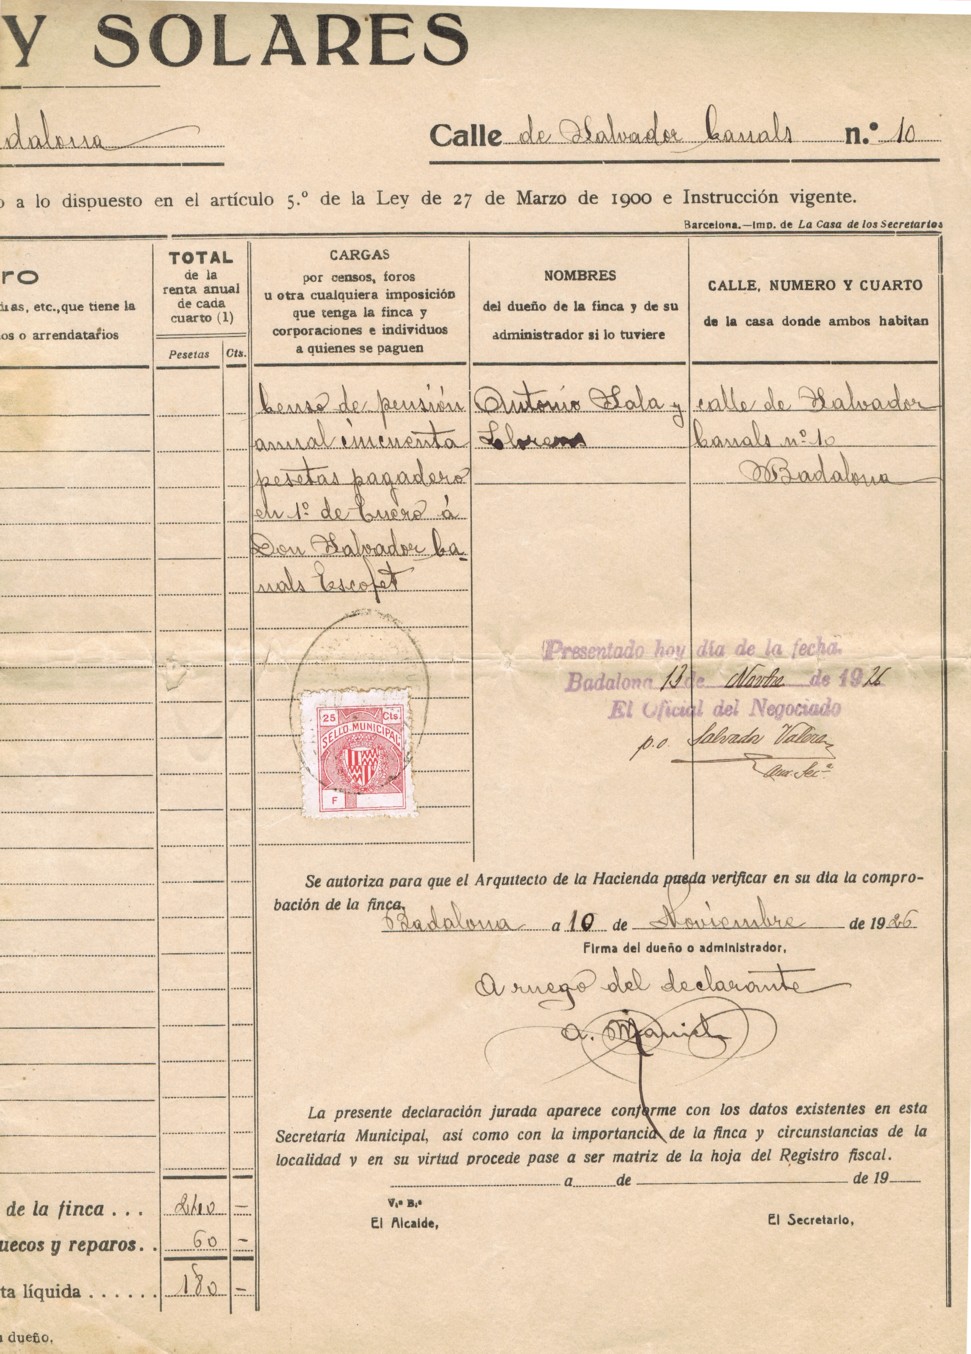 Y SOLARES
dalona
Calle de Salvador Canals n.º 10
o a lo dispuesto en el artículo 5.º de la Ley de 27 de Marzo de 1900 e Instrucción vigente.
Barcelona.—Imp. de La Casa de los Secretarios
ro
as, etc., que tiene la
os o arrendatarios
TOTAL
de la
renta anual
de cada
cuarto (1)
Pesetas Cts.
CARGAS
por censos, foros
u otra cualquiera imposición
que tenga la finca y
corporaciones e individuos
a quienes se paguen
NOMBRES
del dueño de la finca y de su
administrador si lo tuviere
CALLE, NUMERO Y CUARTO
de la casa donde ambos habitan
Censo de pensión
anual cincuenta
pesetas pagadero
en 1º de Enero á
Don Salvador Ca-
nals Escofet
Antonio Sala y
Llorens
calle de Salvador
Canals nº 10
Badalona
Presentado hoy día de la fecha.
Badalona 13 de Novbre de 1926
El Oficial del Negociado
p.o. Salvador
25 Cts
SELLO MUNICIPAL
F
Se autoriza para que el Arquitecto de la Hacienda pueda verificar en su día la compro-
bación de la finca.
Badalona a 10 de Noviembre de 1926
Firma del dueño o administrador,
A ruego del declarante
A.
La presente declaración jurada aparece conforme con los datos existentes en esta
Secretaria Municipal, así como con la importancia de la finca y circunstancias de la
localidad y en su virtud procede pase a ser matriz de la hoja del Registro fiscal.
a de de 19
V.º B.º
El Alcalde,
El Secretario,
de la finca . . . 240 —
uecos y reparos. . 60 —
ta líquida . . . . . . 180 —
dueño.